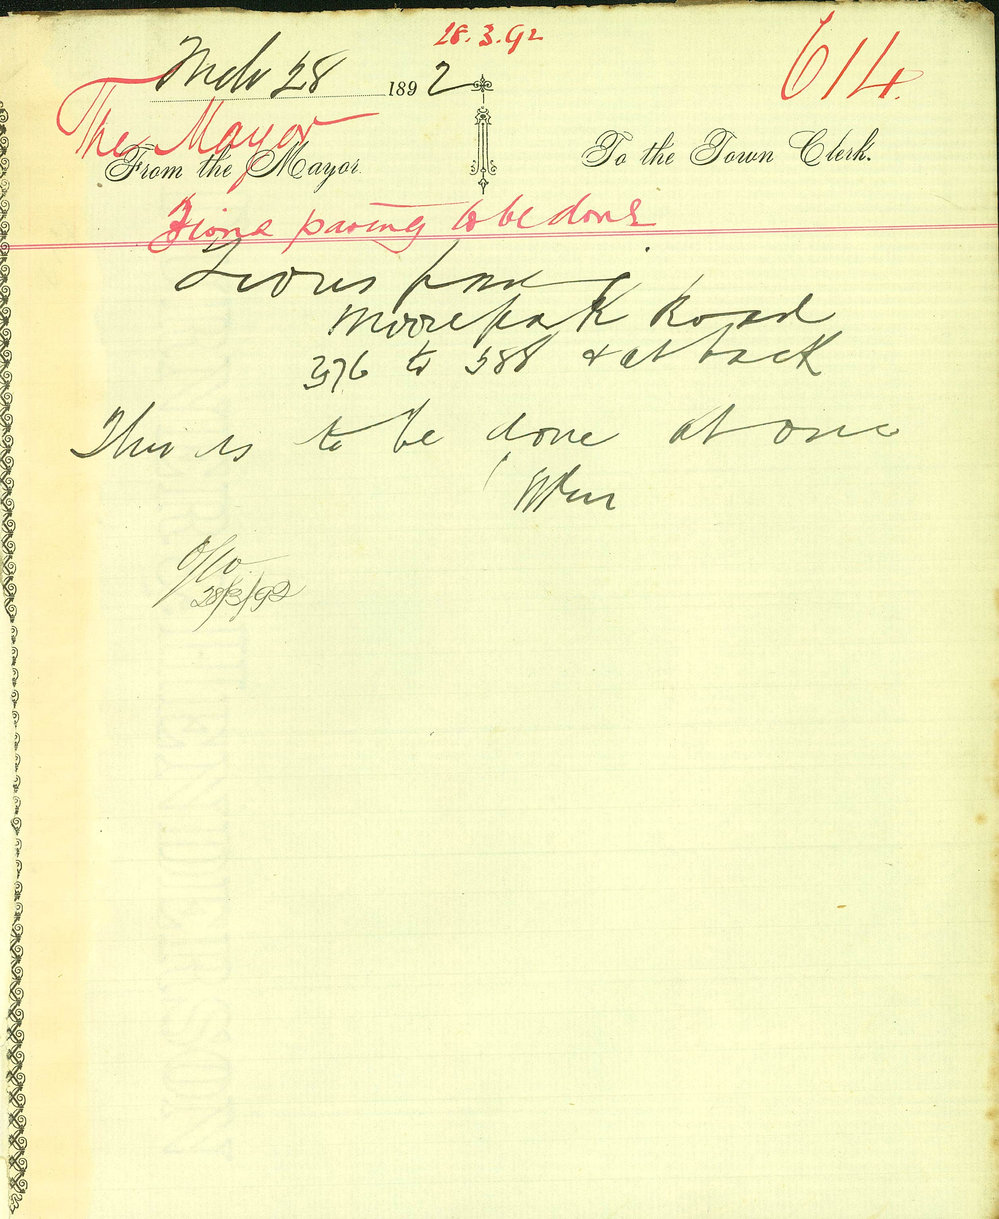 28.3.92
614.
Mch 28 1892
The Mayor
From the Mayor. To the Town Clerk.
paving to be done
Moorepark Road
376 to 588 & at back
This is to be done at once
28/3/92